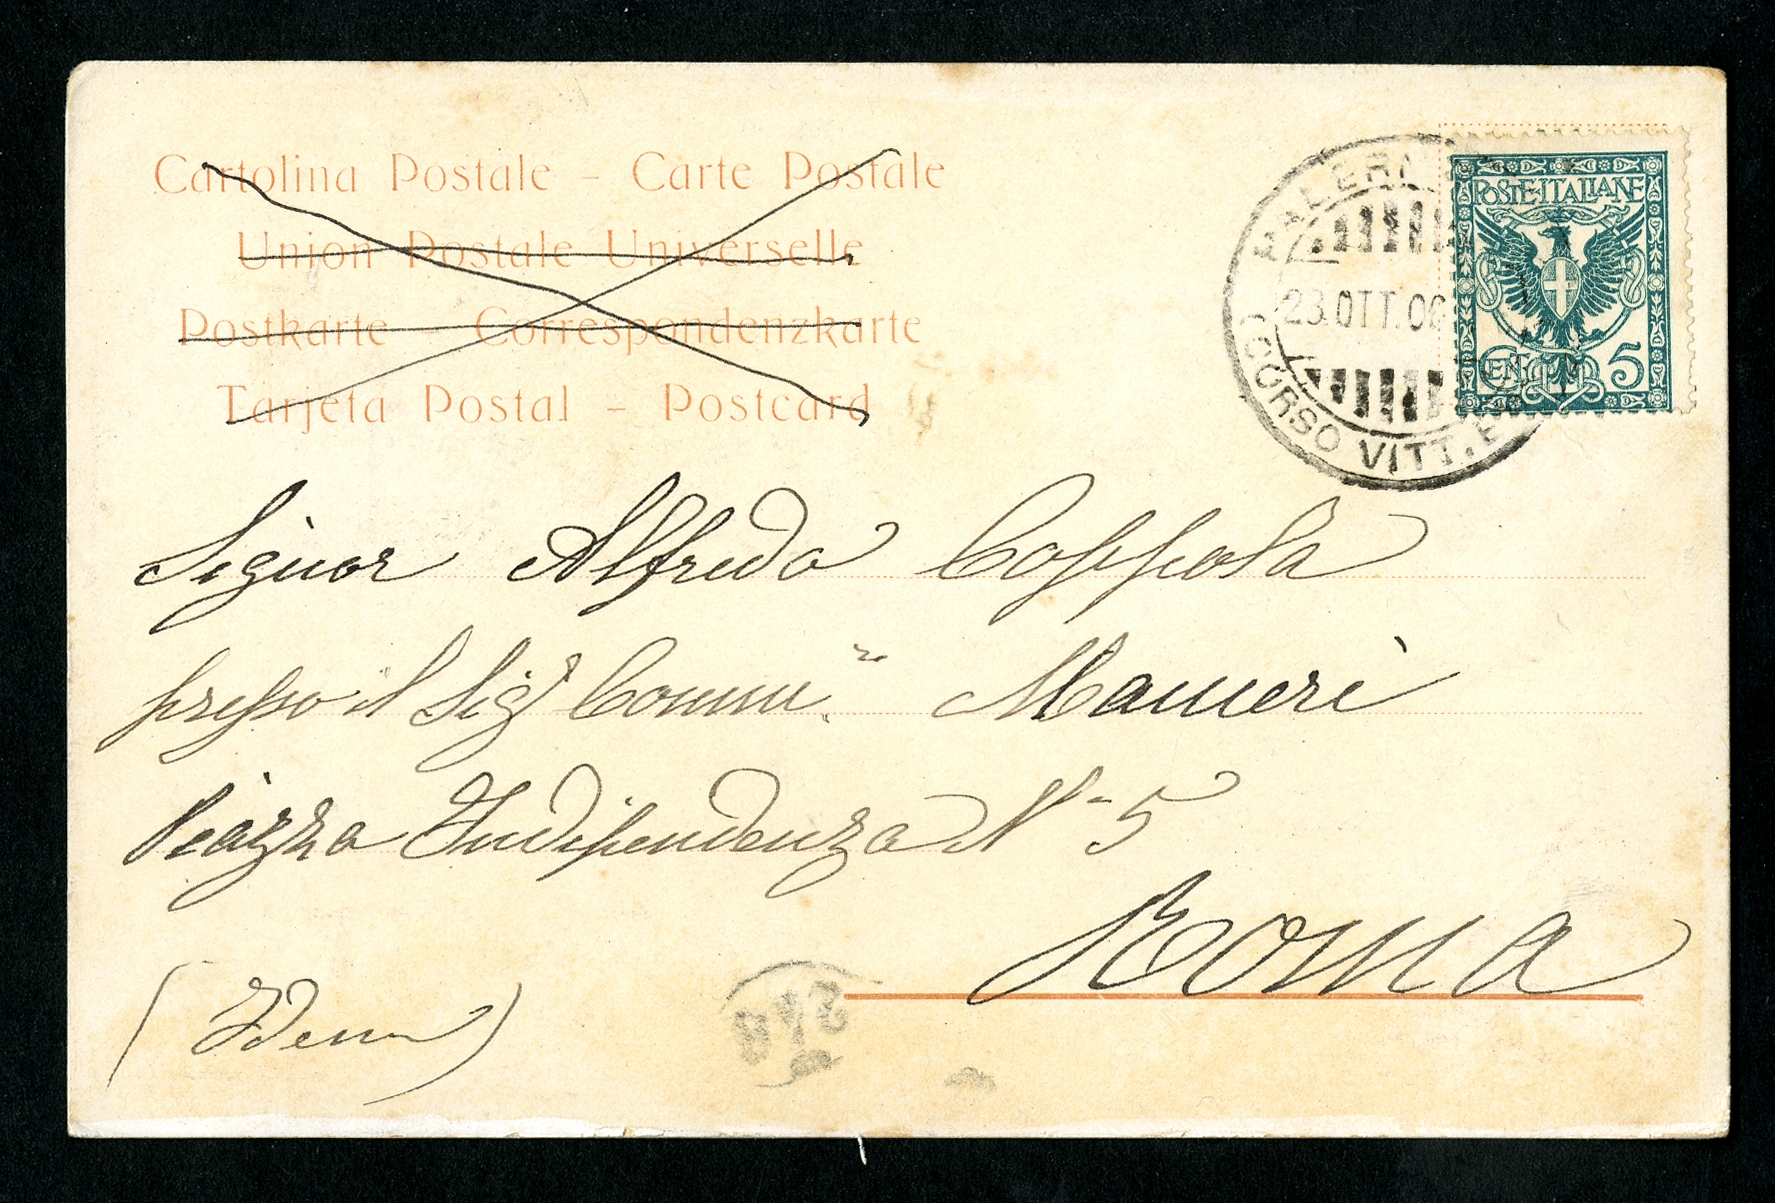 Cartolina Postale – Carte Postale
Union Postale Universelle
Postkarte – Correspondenzkarte
Tarjeta Postal – Postcard
PALERM
23.OTT.06
CORSO VITT. E
POSTE·ITALIANE
CENT. 5
Signor Alfredo Coppola
presso il Sigʳ Comm.ʳᵉ Manieri
Piazza Indipendenza N– 5
Roma
(Idem)